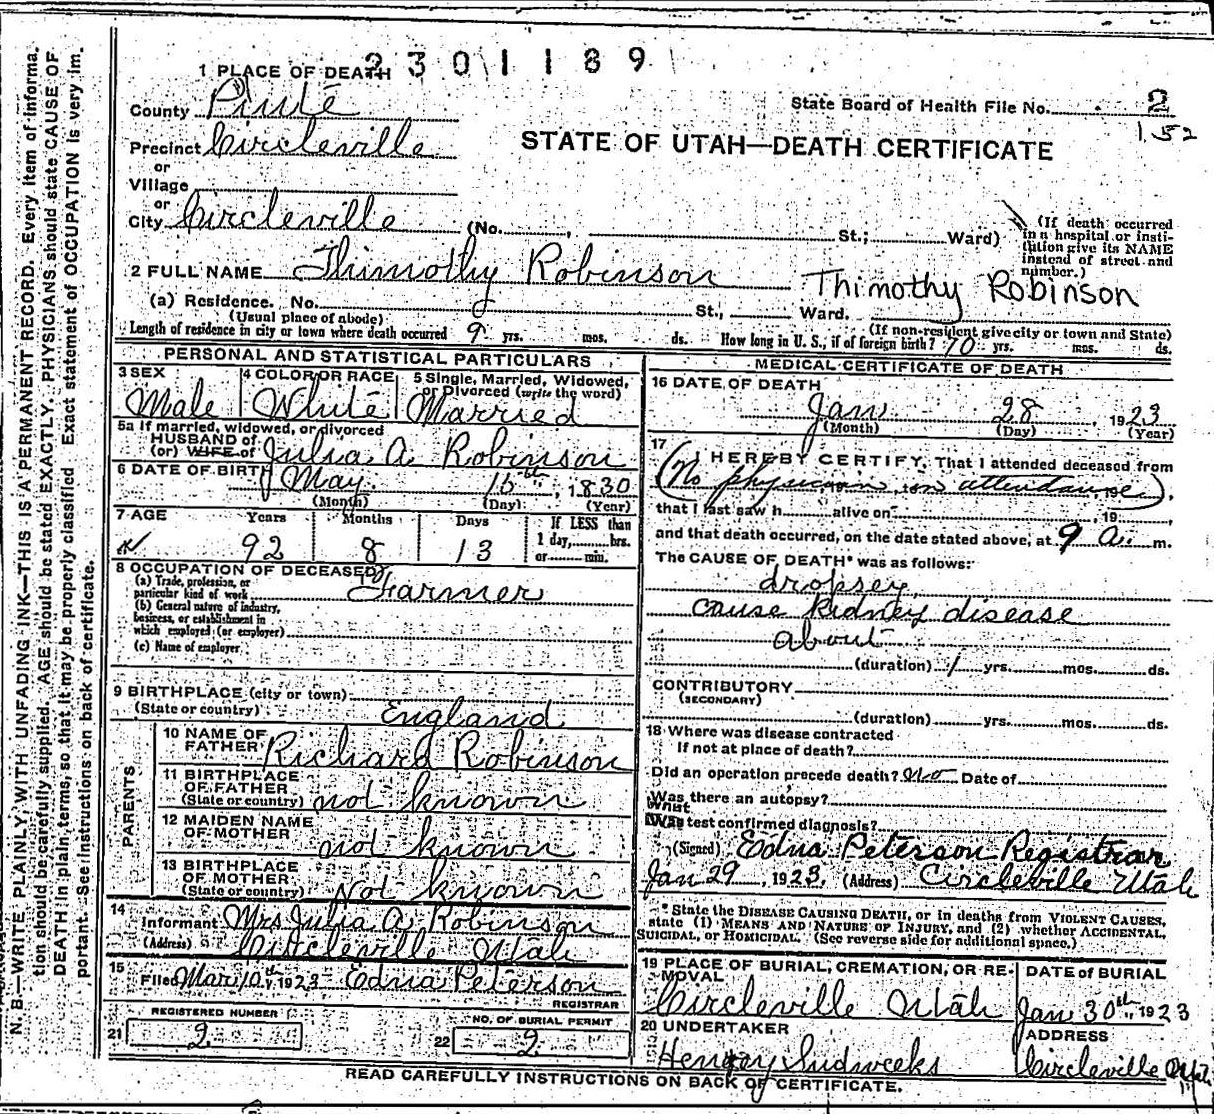 2301189
1 PLACE OF DEATH
County Piute
State Board of Health File No. 2
152
Precinct Circleville
STATE OF UTAH—DEATH CERTIFICATE
or
Village
or
City Circleville (No. , St.; Ward)
(If death occurred in a hospital or institution give its NAME instead of street and number.)
2 FULL NAME Thimothy Robinson Thimothy Robinson
(a) Residence. No. St., Ward.
(Usual place of abode) (If non-resident give city or town and State)
Length of residence in city or town where death occurred 9 yrs. mos. ds. How long in U. S., if of foreign birth? 70 yrs. mos. ds.
PERSONAL AND STATISTICAL PARTICULARS
3 SEX Male
4 COLOR OR RACE White
5 Single, Married, Widowed, or Divorced (write the word) Married
5a If married, widowed, or divorced
HUSBAND of
(or) WIFE of Julia A. Robinson
6 DATE OF BIRTH May 15th, 1830
(Month) (Day) (Year)
7 AGE Years Months Days If LESS than
92 8 13 1 day, hrs.
or min.
8 OCCUPATION OF DECEASED
(a) Trade, profession, or particular kind of work Farmer
(b) General nature of industry, business, or establishment in which employed (or employer)
(c) Name of employer
9 BIRTHPLACE (city or town)
(State or country) England
PARENTS
10 NAME OF FATHER Richard Robinson
11 BIRTHPLACE OF FATHER (State or country) not known
12 MAIDEN NAME OF MOTHER not known
13 BIRTHPLACE OF MOTHER (State or country) Not known
14 Informant Mrs Julia A. Robinson
(Address) Circleville Utah
15 Filed Mar 10th, 1923 Edna Peterson
REGISTRAR
REGISTERED NUMBER
21 2
NO. OF BURIAL PERMIT
22 2
MEDICAL CERTIFICATE OF DEATH
16 DATE OF DEATH
Jan 28, 1923
(Month) (Day) (Year)
17 I HEREBY CERTIFY, That I attended deceased from
(No physician in attendance).
that I last saw h alive on , 19 ,
and that death occurred, on the date stated above, at 9 a. m.
The CAUSE OF DEATH* was as follows:
dropsey
cause kidney disease
about
(duration) 1 yrs. mos. ds.
CONTRIBUTORY
(SECONDARY)
(duration) yrs. mos. ds.
18 Where was disease contracted
If not at place of death?
Did an operation precede death? no Date of
Was there an autopsy?
What test confirmed diagnosis?
(Signed) Edna Peterson Registrar
Jan 29, 1923. (Address) Circleville Utah
* State the DISEASE CAUSING DEATH, or in deaths from VIOLENT CAUSES,
state (1) MEANS AND NATURE OF INJURY, and (2) whether ACCIDENTAL,
SUICIDAL, or HOMICIDAL. (See reverse side for additional space.)
19 PLACE OF BURIAL, CREMATION, OR REMOVAL DATE of BURIAL
Circleville Utah Jan 30th, 1923
20 UNDERTAKER ADDRESS
Henry Sudweeks Circleville Ut.
READ CAREFULLY INSTRUCTIONS ON BACK OF CERTIFICATE.
N. B.—WRITE PLAINLY, WITH UNFADING INK—THIS IS A PERMANENT RECORD. Every item of informa-
tion should be carefully supplied. AGE should be stated EXACTLY. PHYSICIANS should state CAUSE OF
DEATH in plain terms, so that it may be properly classified. Exact statement of OCCUPATION is very im-
portant. See instructions on back of certificate.